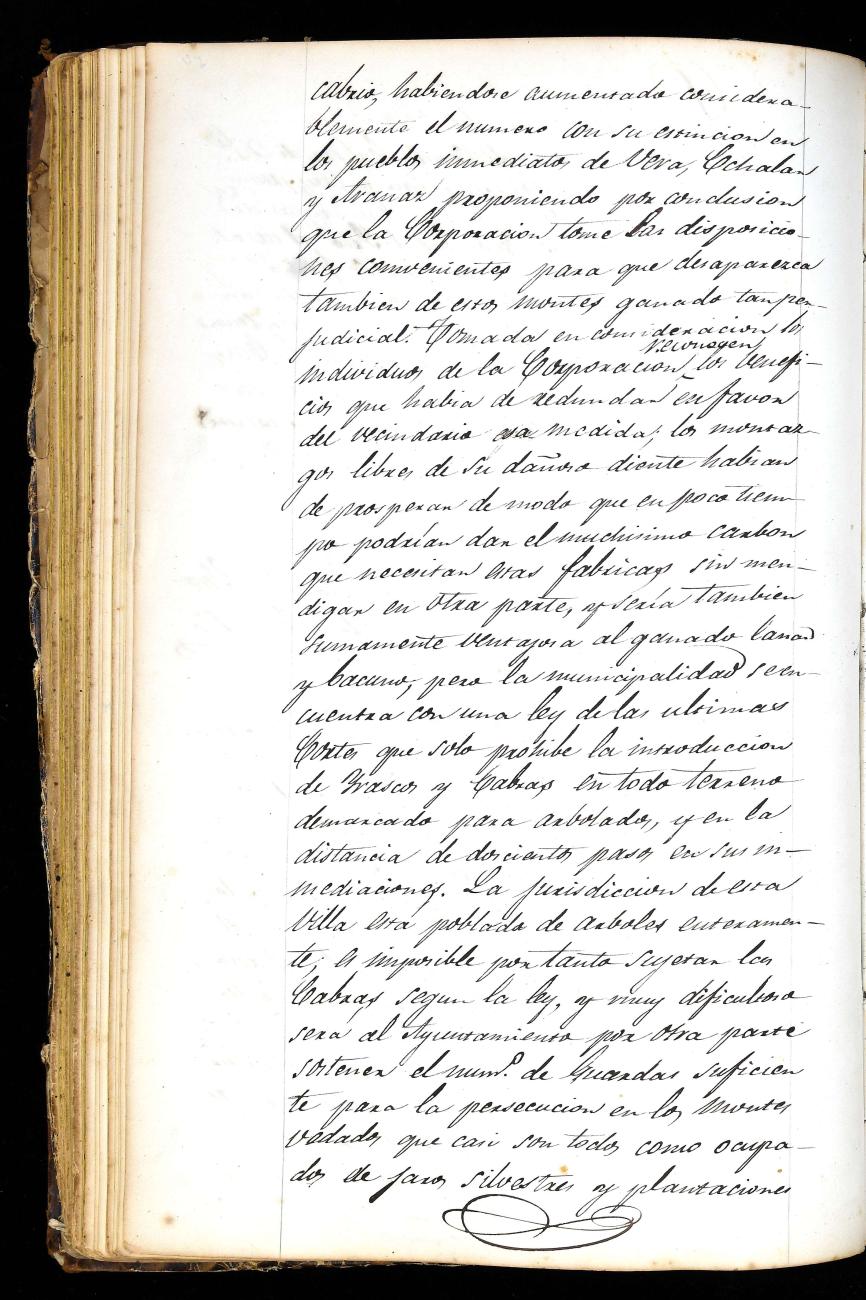 cabrio, habiendose aumentado considera-
blemente el numero con su estincion en
los pueblos inmediatos de Vera, Echalar
y Aranaz proponiendo por conclusion
que la Corporacion tome las disposicio-
nes convenientes para que desaparezca
tambien de estos montes ganado tan per-
judicial. Tomada en consideracion los
individuos de la Corporacion, reconocen los benefi-
cios que habia de redundar en favor
del vecindario esa medida; los montaz-
gos libres de su dañoso diente habian
de prosperar de modo que en poco tiem-
po podrían dar el muchisimo carbon
que necesitan estas fabricas sin men-
digar en otra parte, y sería tambien
sumamente ventajosa al ganado lanar
y bacuno, pero la municipalidad se en-
cuentra con una ley de las ultimas
Cortes que solo prohibe la introduccion
de Irascos y Cabras en todo terreno
demarcado para arbolados, y en la
distancia de doscientos pasos en sus in-
mediaciones. La jurisdiccion de esta
Villa esta poblada de arboles enteramen-
te; es imposible por tanto sujetar las
Cabras segun la ley, y muy dificultoso
será al Ayuntamiento por otra parte
sostener el num.º de Guardas suficien
te para la persecucion en los montes
vedados que casi son todos como ocupa-
dos de jaros silvestres y plantaciones